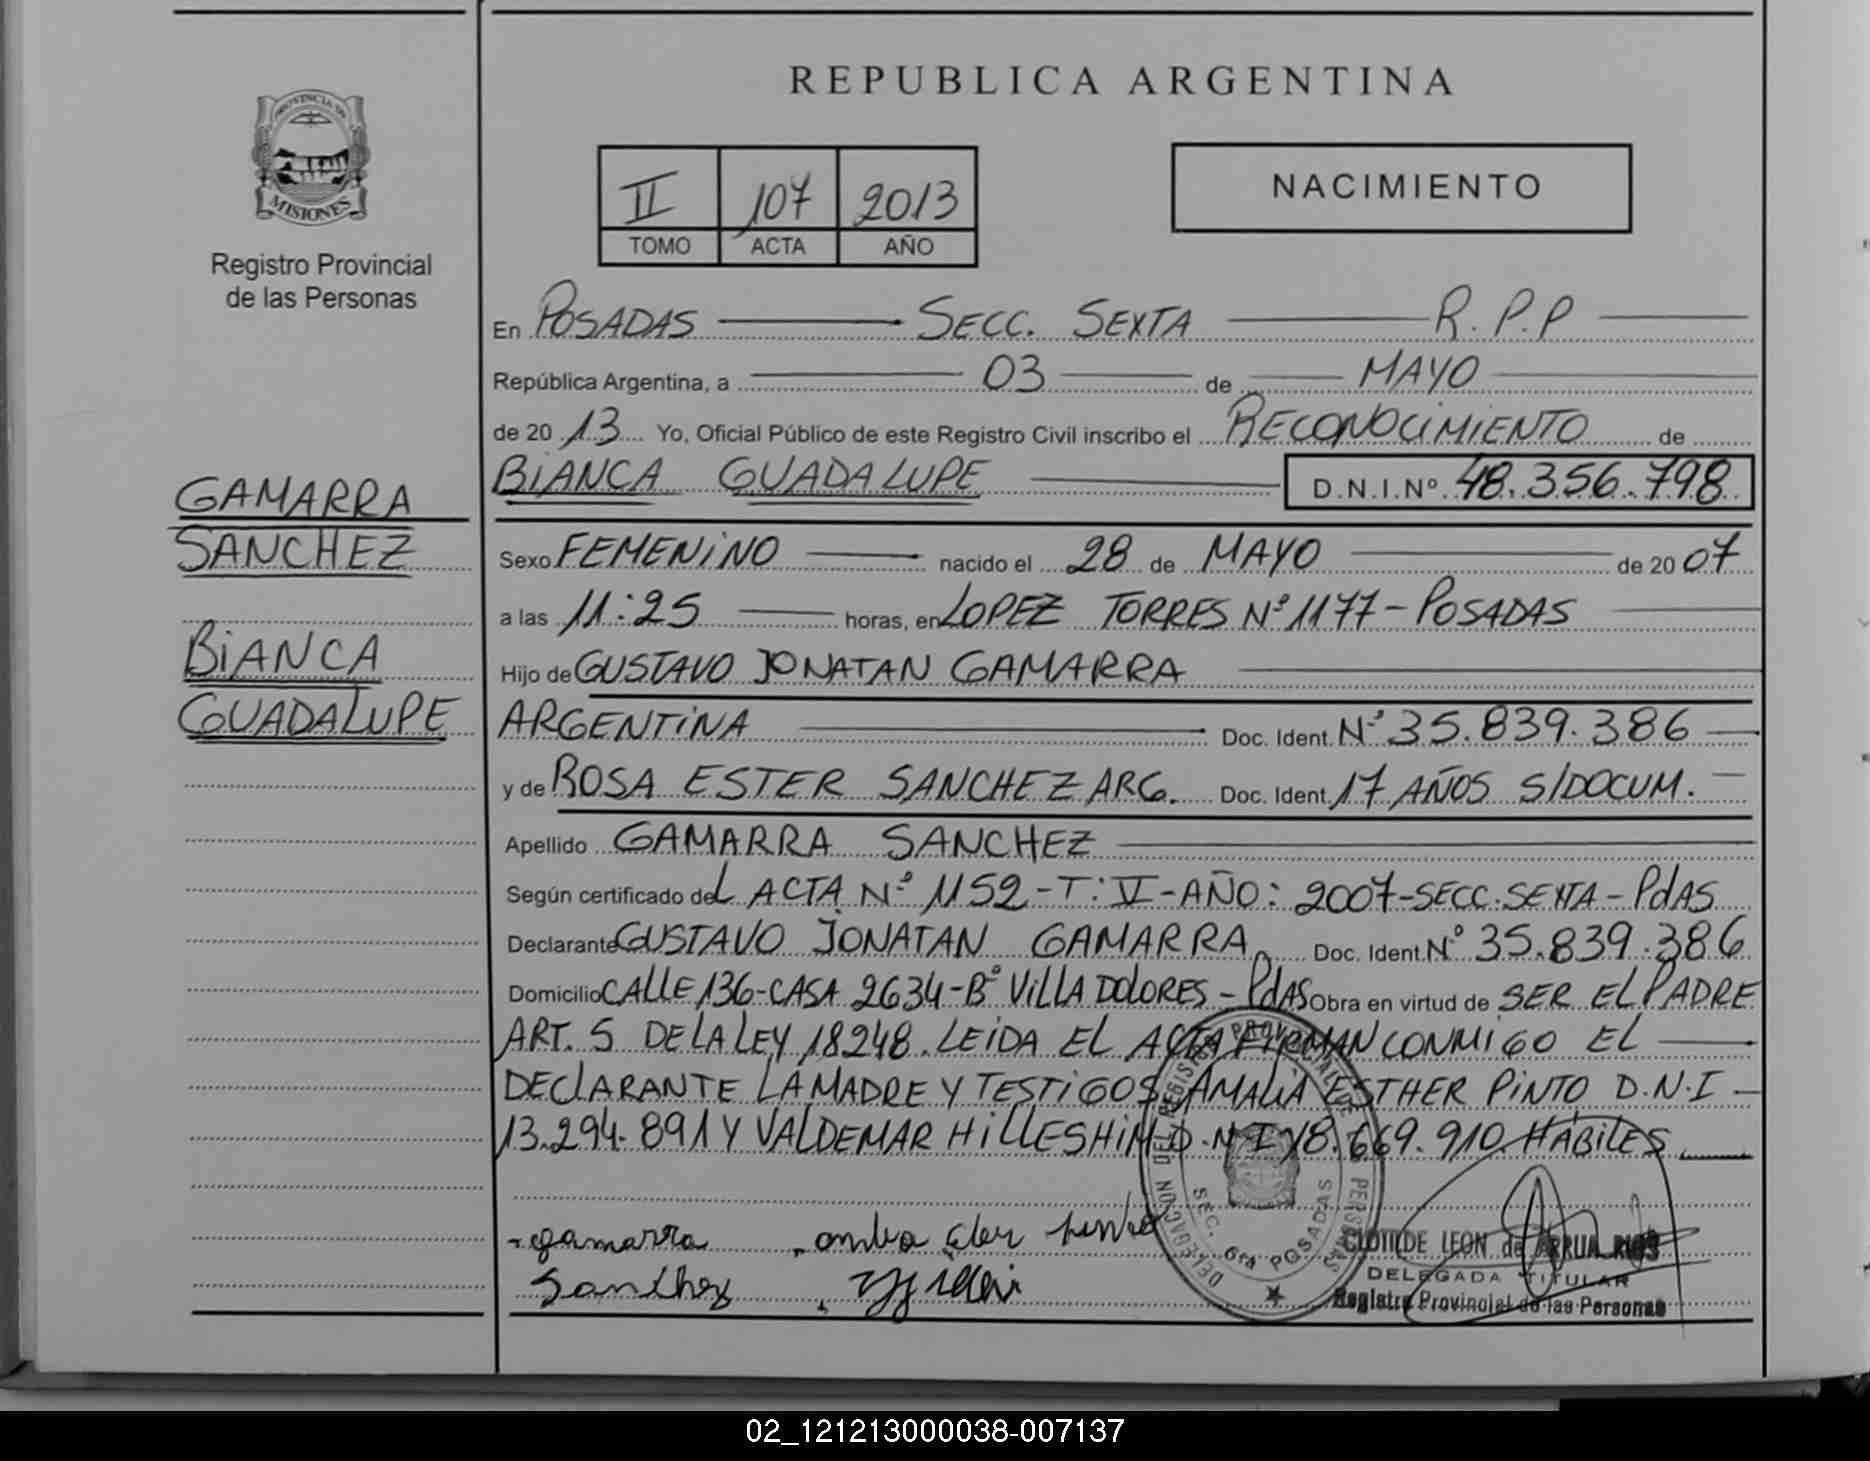 REPUBLICA ARGENTINA
PROVINCIA DE
MISIONES
Registro Provincial
de las Personas
II 107 2013
TOMO ACTA AÑO
NACIMIENTO
En POSADAS SECC. SEXTA R.P.P
República Argentina, a 03 de MAYO
de 20 13 Yo, Oficial Público de este Registro Civil inscribo el RECONOCIMIENTO de
BIANCA GUADALUPE D.N.I.Nº 48.356.798
GAMARRA
SANCHEZ
BIANCA
GUADALUPE
Sexo FEMENINO nacido el 28 de MAYO de 20 07
a las 11:25 horas, en LOPEZ TORRES Nº 1177 - POSADAS
Hijo de GUSTAVO JONATAN GAMARRA
ARGENTINA Doc. Ident. Nº 35.839.386
y de ROSA ESTER SANCHEZ ARG. Doc. Ident. 17 AÑOS S/DOCUM.
Apellido GAMARRA SANCHEZ
Según certificado del ACTA Nº 1152-T:V-AÑO: 2007-SECC.SEXTA-PdAS
Declarante GUSTAVO JONATAN GAMARRA Doc. Ident. Nº 35.839.386
Domicilio CALLE 136-CASA 2634-Bº VILLA DOLORES - PdAS Obra en virtud de SER EL PADRE
ART. 5 DE LA LEY 18248. LEIDA EL ACTA FIRMAN CONMIGO EL
DECLARANTE LA MADRE Y TESTIGOS AMALIA ESTHER PINTO D.N.I
13.294.891 Y VALDEMAR HILLESHIM D.N.I 18.669.910 HÁBILES
gamarra
Sanchez
DELEGACION DEL REGISTRO PROVINCIAL DE LAS PERSONAS
SEC. 6ta POSADAS
CLOTILDE LEON de ARRUA RIOS
DELEGADA TITULAR
Registro Provincial de las Personas
02_121213000038-007137